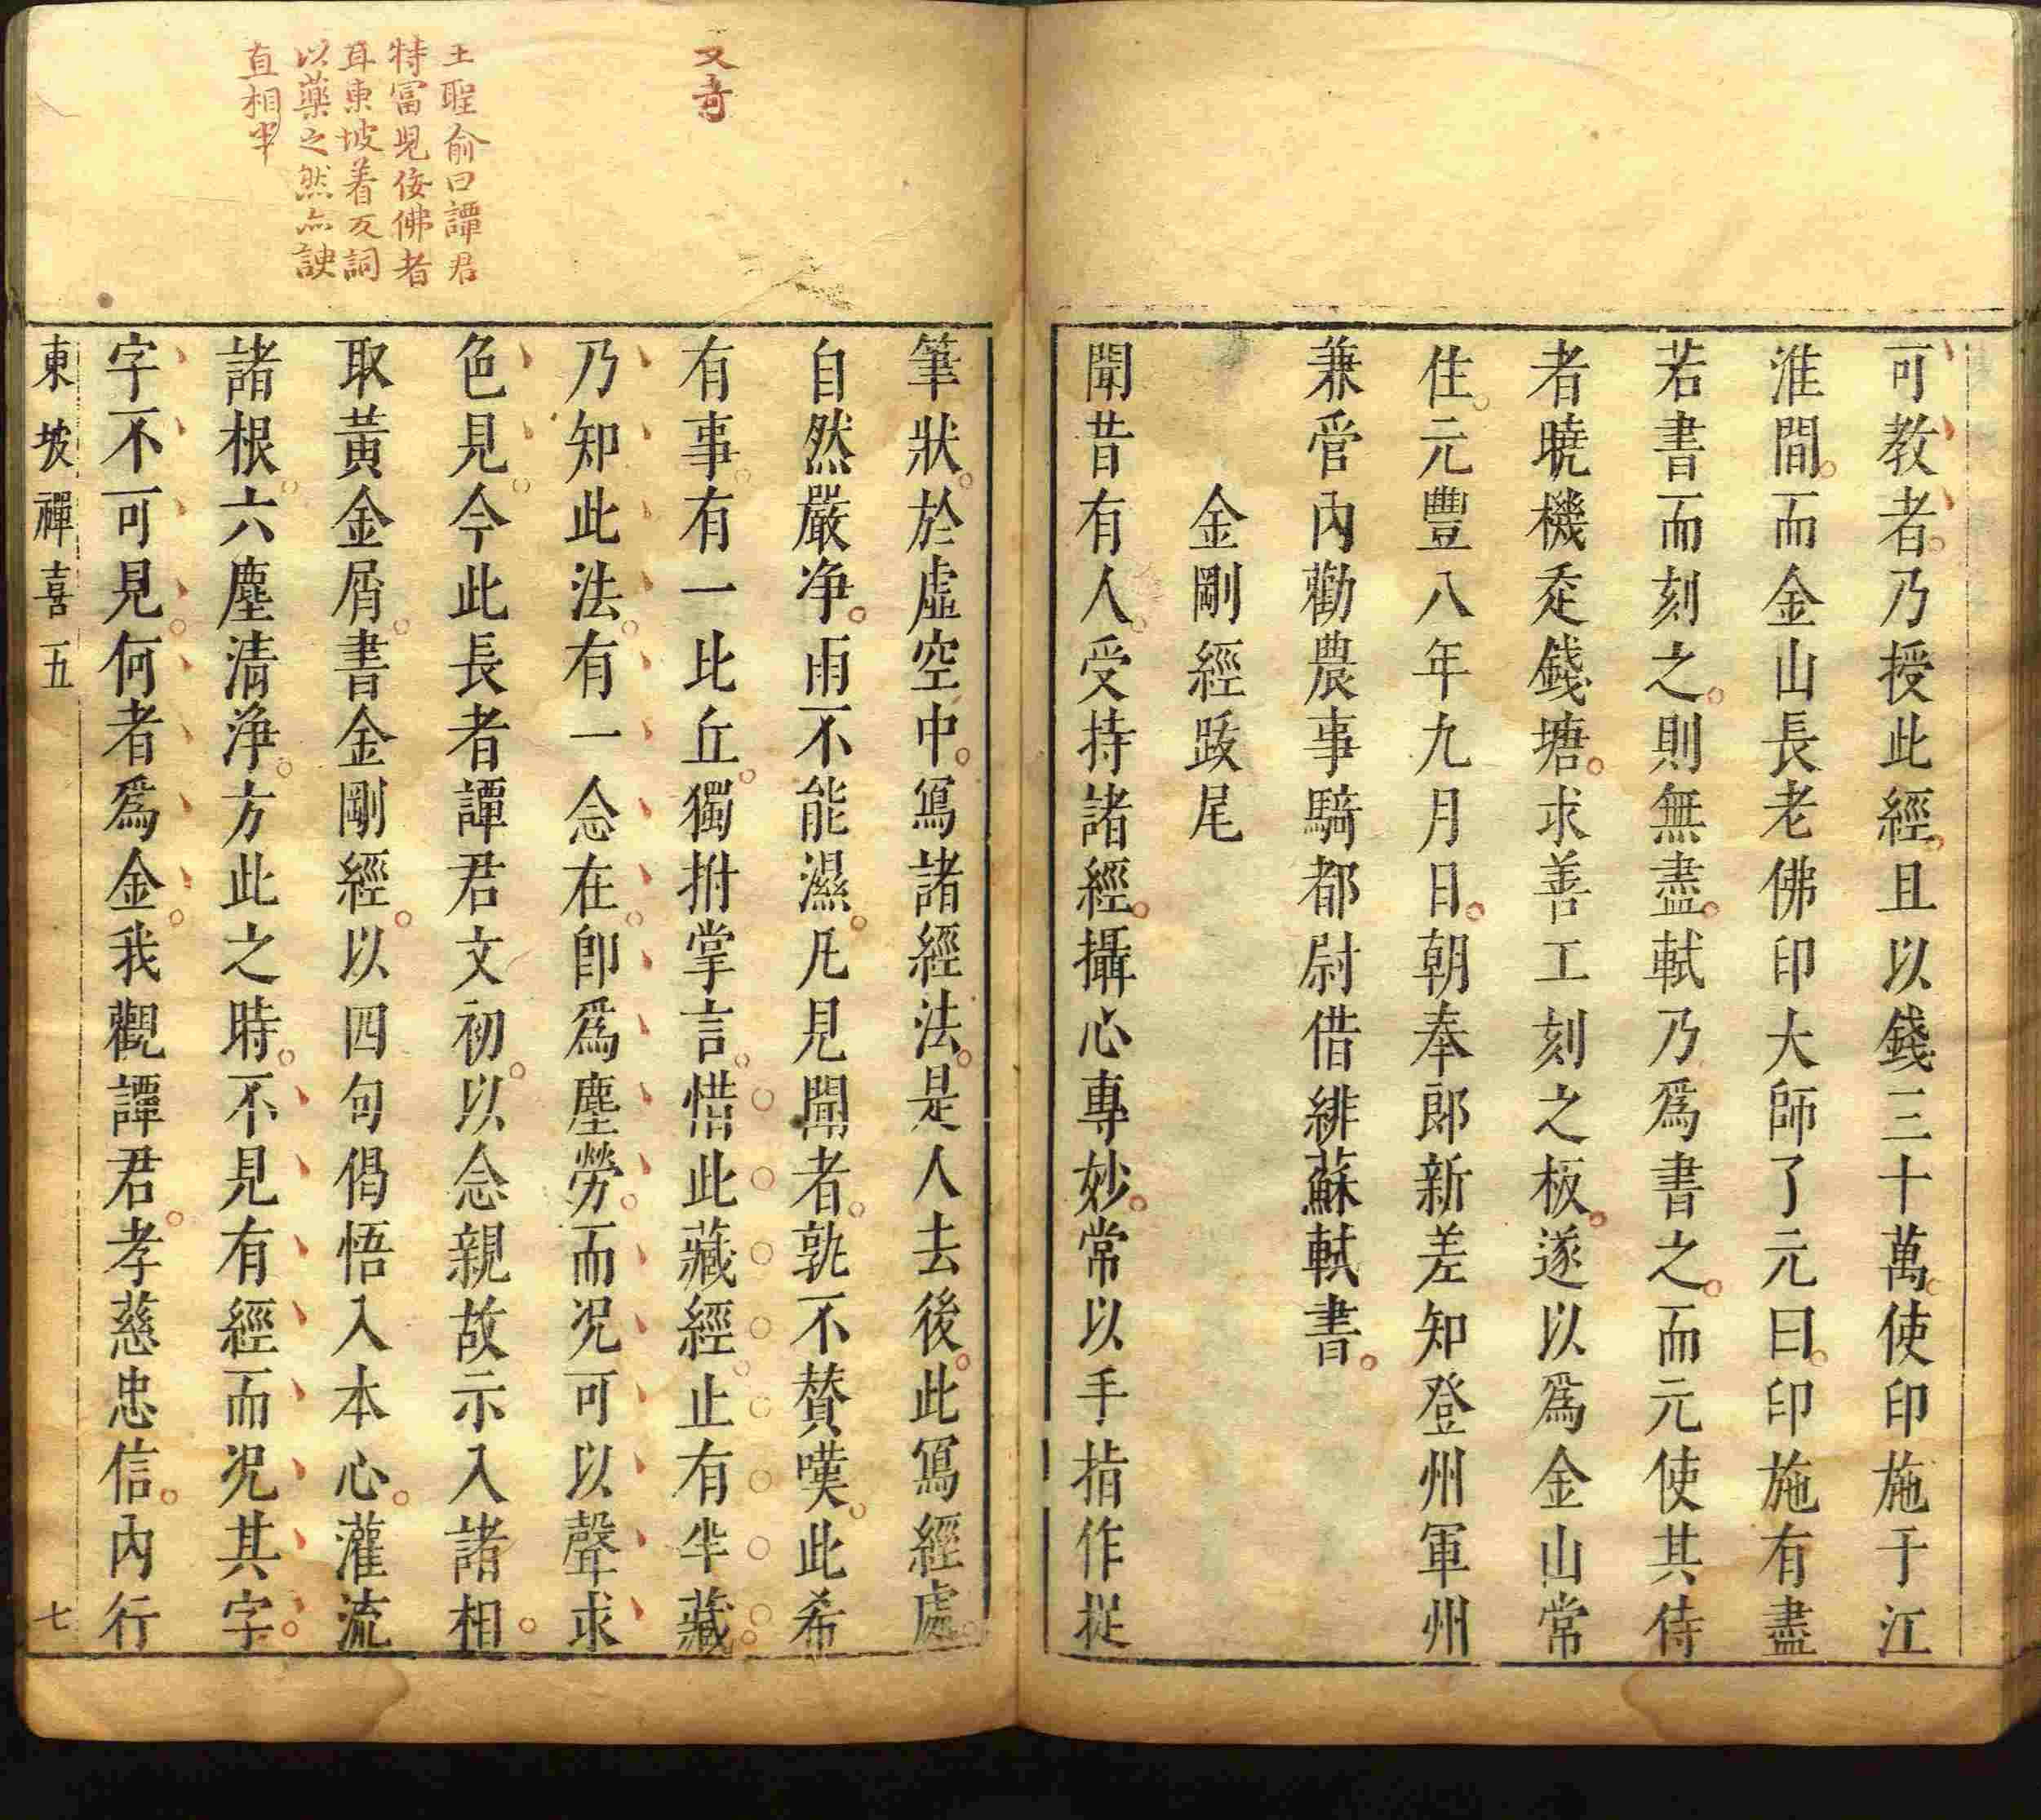 可教者乃授此經且以錢三十萬使印施于江
淮間而金山長老佛印大師了元曰印施有盡
若書而刻之則無盡軾乃爲書之而元使其侍
者曉機走錢塘求善工刻之板遂以爲金山常
住元豐八年九月日朝奉郎新差知登州軍州
兼管內勸農事騎都尉借緋蘇軾書
金剛經跋尾
聞昔有人受持諸經攝心專妙常以手指作捉
又奇
王聖俞曰譚君
特富兒佞佛者
耳東坡着反詞
以藥之然亦諛
直相半
筆狀於虛空中寫諸經法是人去後此寫經處
自然嚴净雨不能濕凡見聞者孰不賛嘆此希
有事有一比丘獨拊掌言惜此藏經止有半藏
乃知此法有一念在即爲塵勞而况可以聲求
色見今此長者譚君文初以念親故示入諸相
取黃金屑書金剛經以四句偈悟入本心灌流
諸根六塵清淨方此之時不見有經而况其字
字不可見何者爲金我觀譚君孝慈忠信內行
東坡禪喜五 七